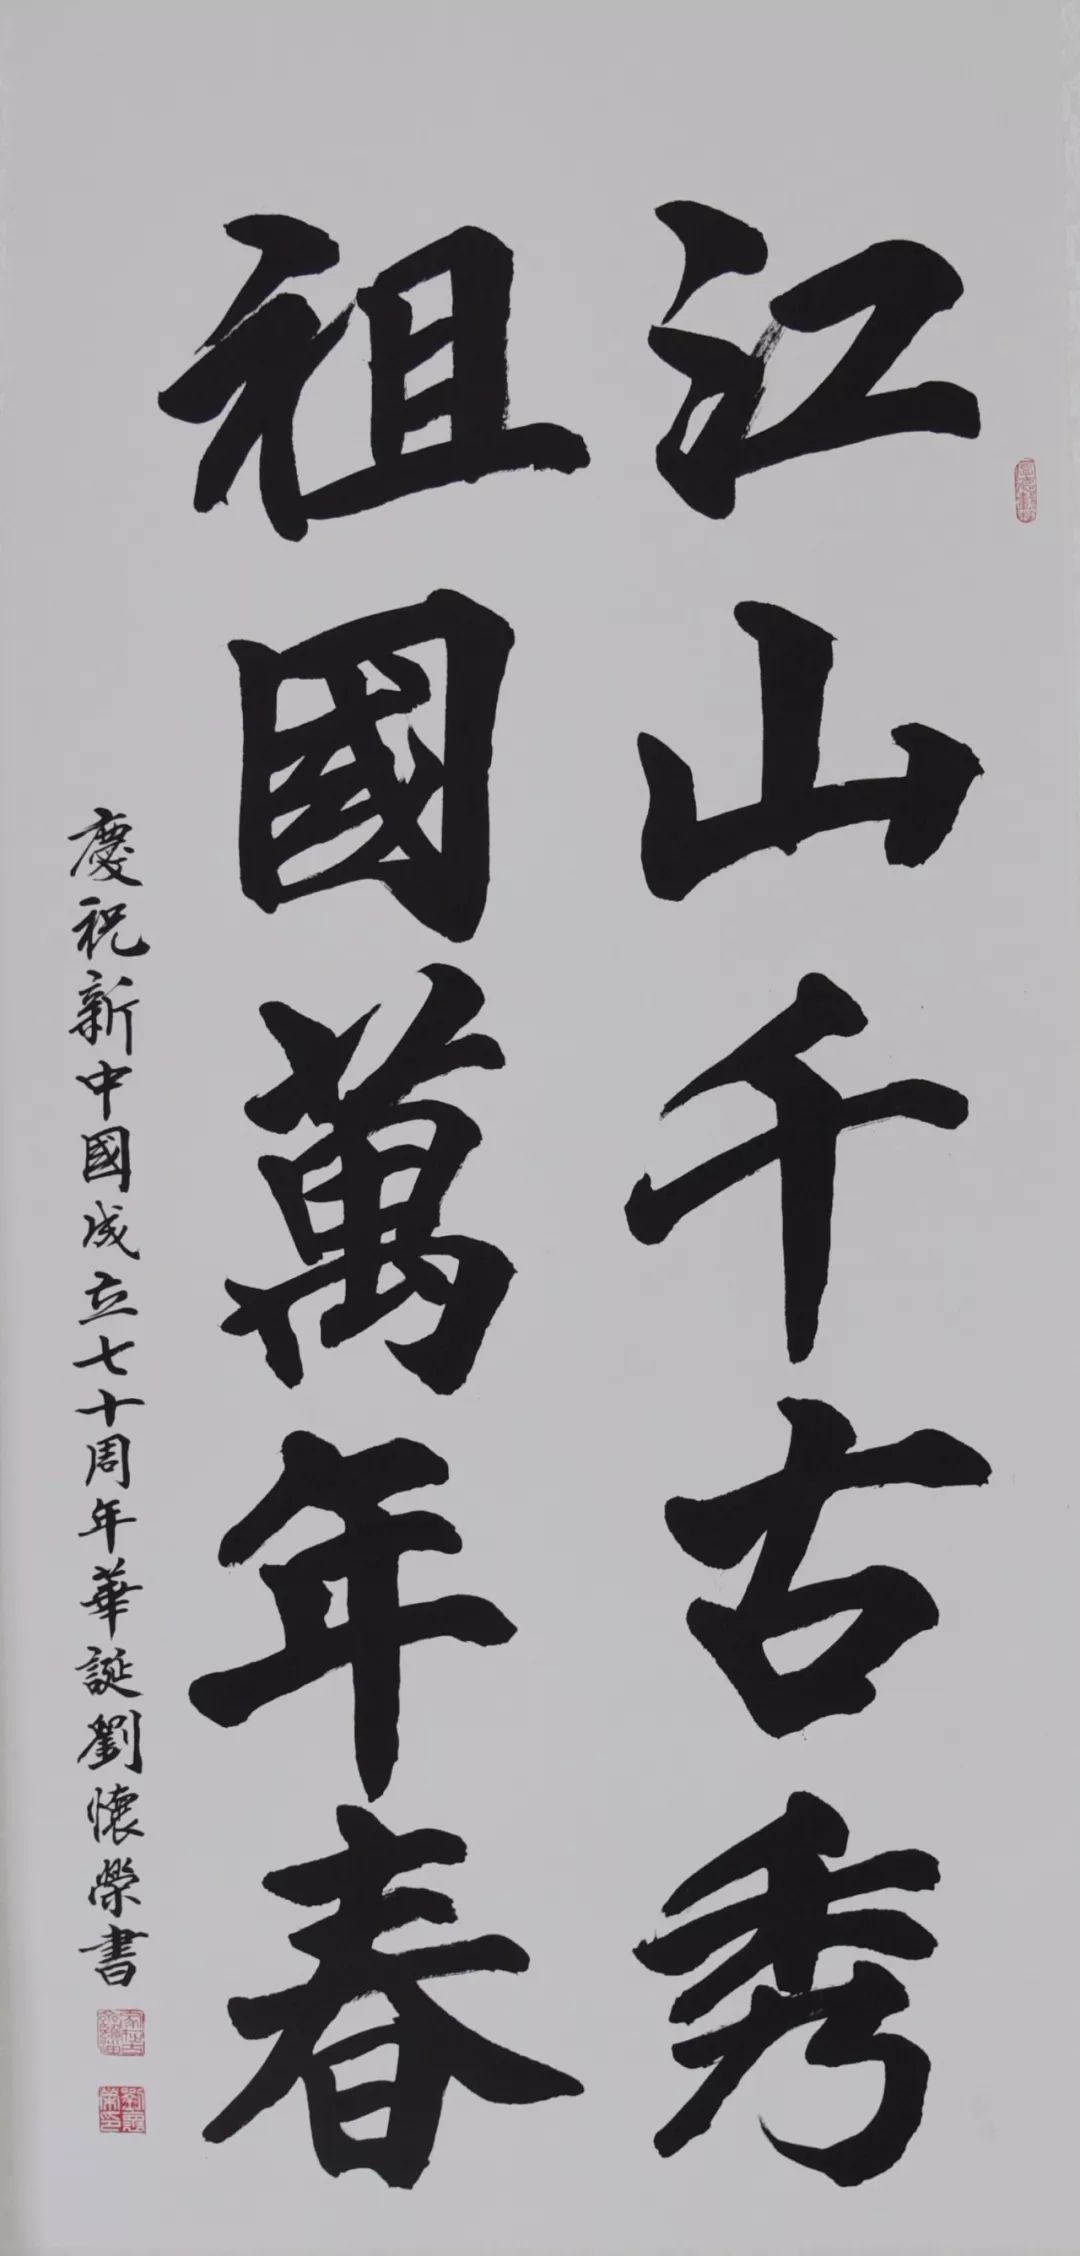 江山千古秀
祖國萬年春
慶祝新中國成立七十周年華誕劉懷榮書